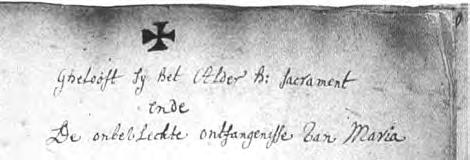 Ghelooft sy het Alder H: sacrament
ende
De onbevleckte ontfangenisse van Maria